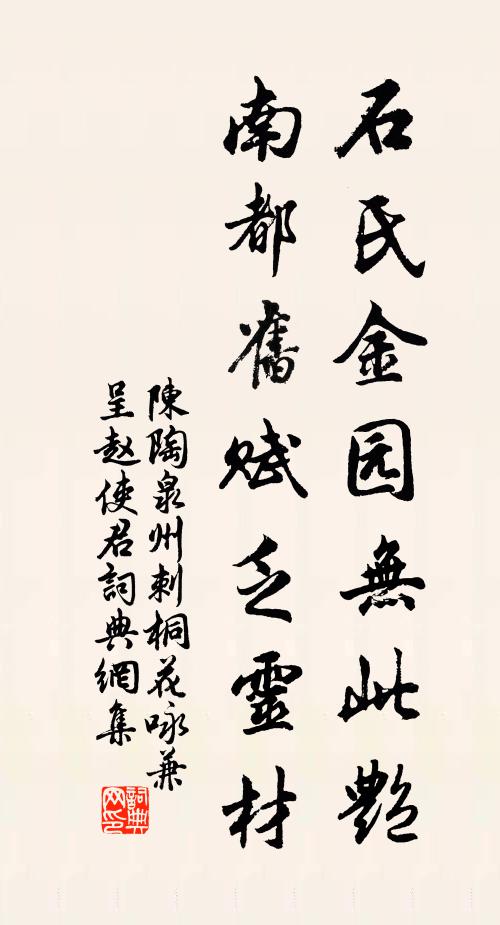 石氏金园無此艷
南都舊賦乏靈材
陳陶泉州刺桐花咏兼
呈赵使君詞典網集
詞典
网印